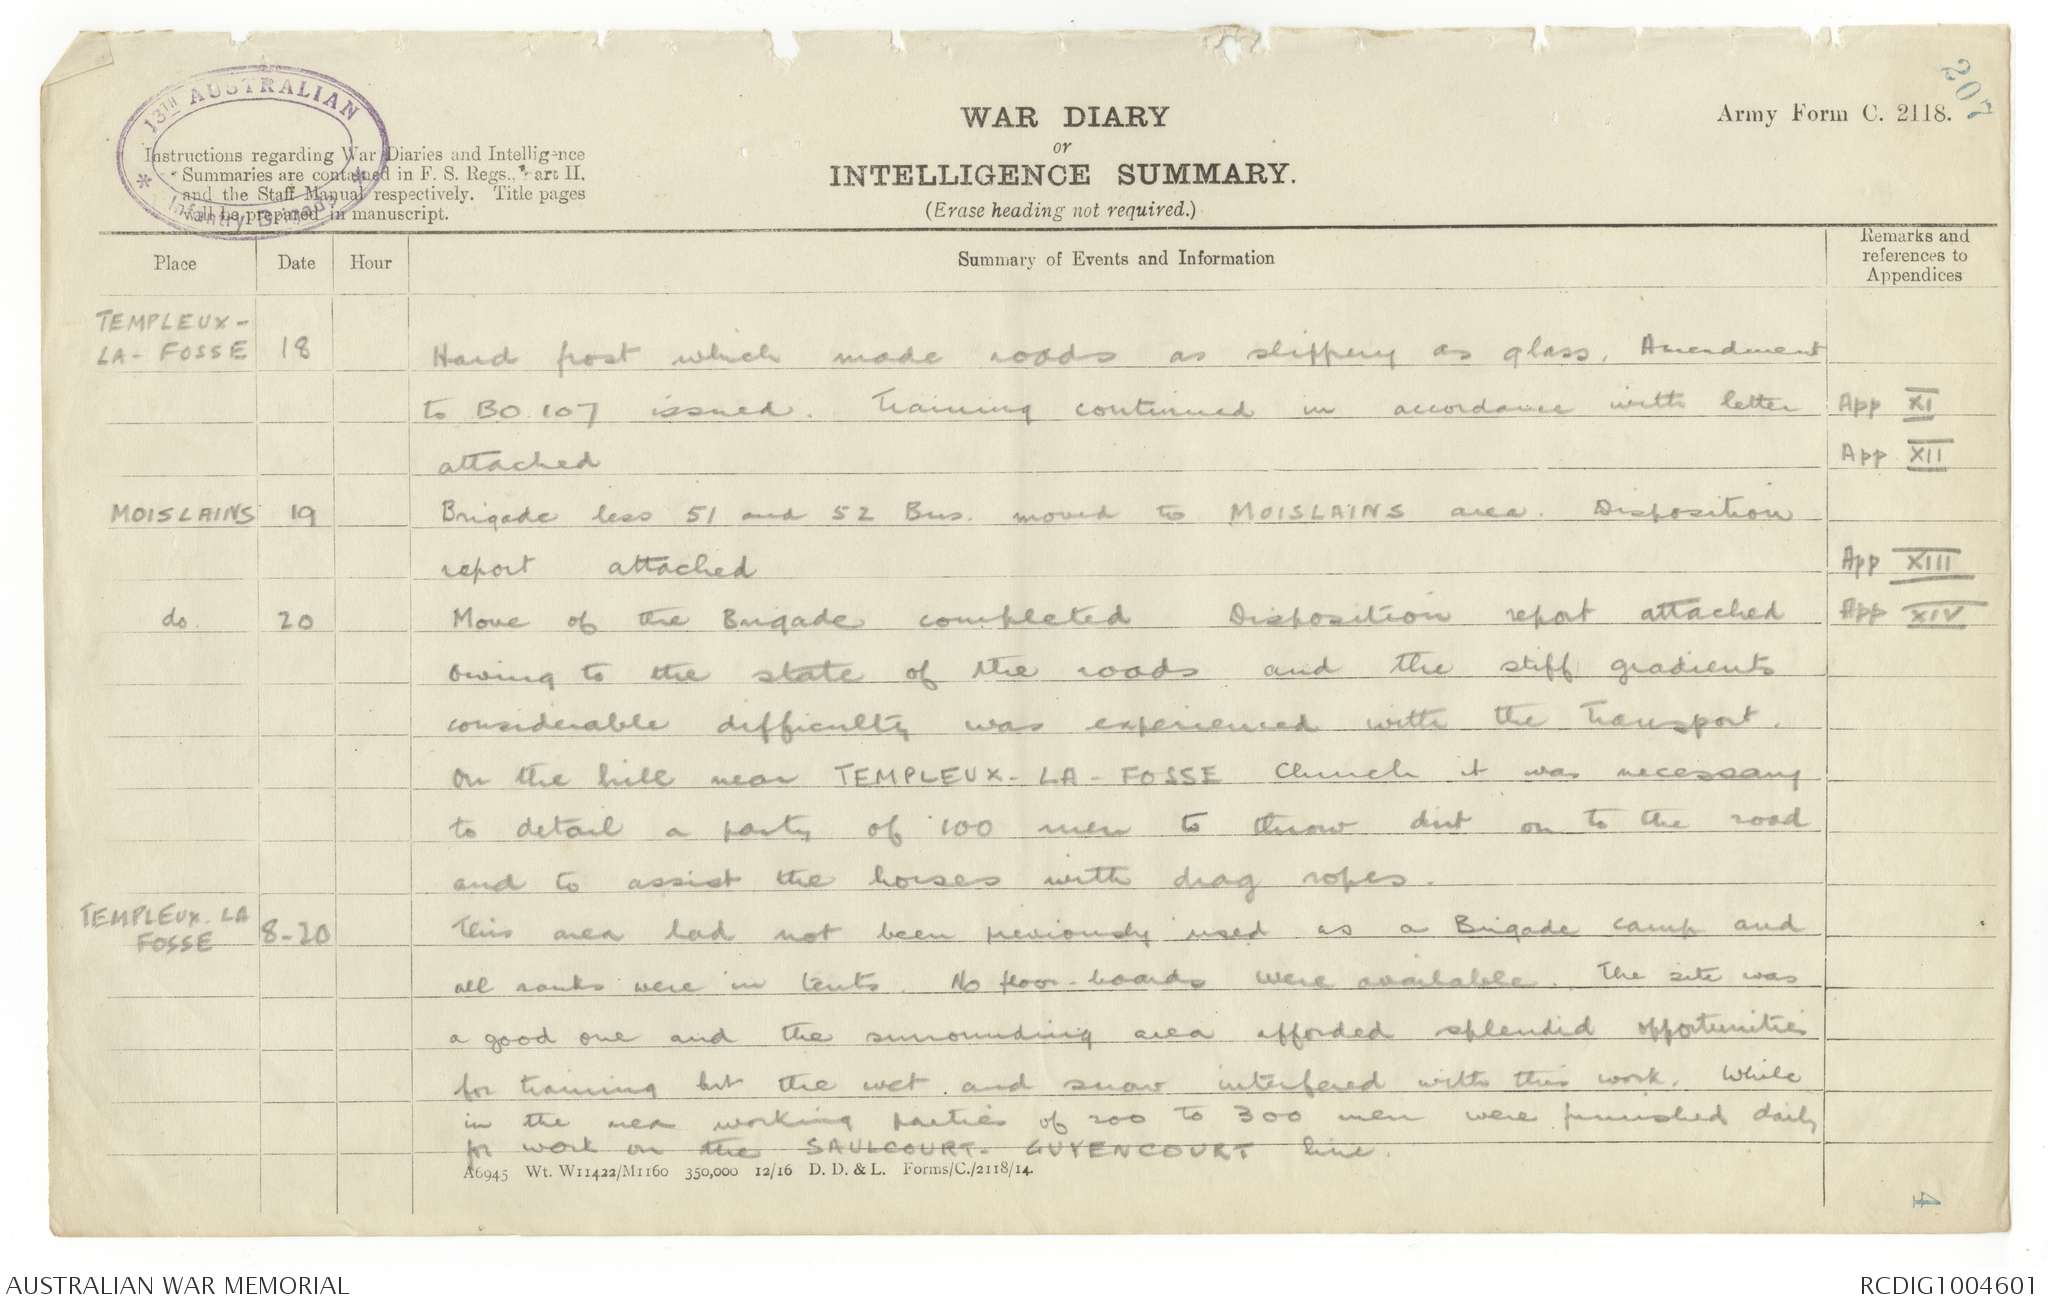 207
13TH AUSTRALIAN
Infantry Brigade
Instructions regarding War Diaries and Intelligence
Summaries are contained in F. S. Regs., Part II.
and the Staff Manual respectively. Title pages
will be prepared in manuscript.
WAR DIARY
or
INTELLIGENCE SUMMARY.
(Erase heading not required.)
Army Form C. 2118.
Place Date Hour Summary of Events and Information Remarks and references to Appendices
TEMPLEUX-
LA-FOSSE 18 Hard frost which made roads as slippery as glass. Amendment
to BO.107 issued. Training continued in accordance with letter App XI
attached App XII
MOISLAINS 19 Brigade less 51 and 52 Bns. moved to MOISLAINS area. Disposition
report attached App XIII
do. 20 Move of the Brigade completed Disposition report attached App XIV
Owing to the state of the roads and the stiff gradients
considerable difficulty was experienced with the Transport.
On the hill near TEMPLEUX-LA-FOSSE Church it was necessary
to detail a party of 100 men to throw dirt on to the road
and to assist the horses with drag ropes.
TEMPLEUX-LA
FOSSE 8-20 This area had not been previously used as a Brigade camp and
all ranks were in tents. No floor-boards were available. The site was
a good one and the surrounding area afforded splendid opportunities
for training but the wet and snow interfered with this work. While
in the area working parties of 200 to 300 men were furnished daily
for work on the SAULCOURT-GUYENCOURT line.
A6945 Wt. W11422/M1160 350,000 12/16 D. D. & L. Forms/C./2118/14.
4
AUSTRALIAN WAR MEMORIAL
RCDIG1004601